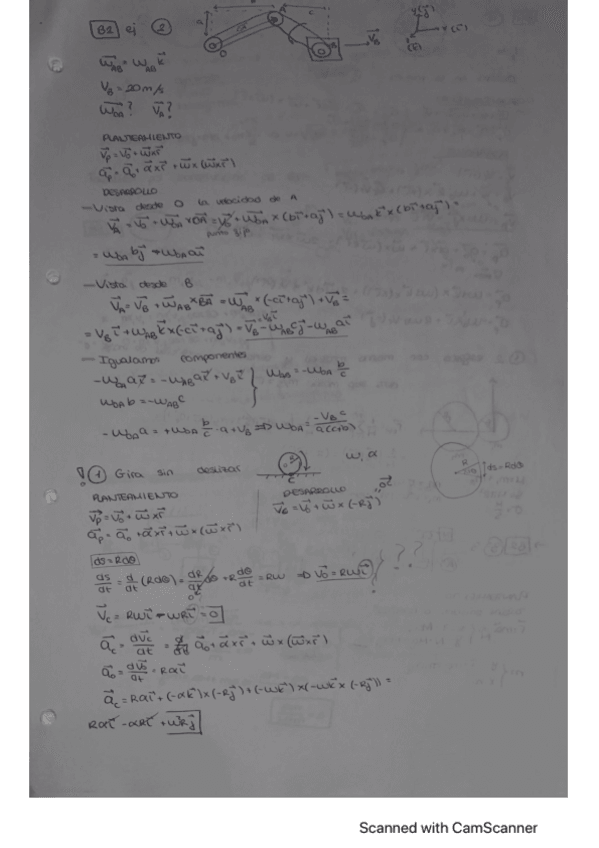 B2 ej 2
a
b
c
A
O
B
V⃗_B
y(j⃗)
x(i⃗)
z(k⃗)
ω⃗_AB = ω_AB k⃗
V_B = 20 m/s
ω⃗_OA? V⃗_A?
PLANTEAMIENTO
V⃗_P = V⃗_O + ω⃗×r⃗
a⃗_P = a⃗_O + α⃗×r⃗ + ω⃗×(ω⃗×r⃗)
DESARROLLO
- Vista desde O la velocidad de A
V⃗_A = V⃗_O + ω⃗_OA × OA = V⃗_O + ω⃗_OA × (bi⃗+aj⃗) = ω_OA k⃗ × (bi⃗+aj⃗) =
punto fijo
= ω_OA bj⃗ - ω_OA ai⃗
- Vista desde B
V⃗_A = V⃗_B + ω⃗_AB × BA = ω⃗_AB × (-ci⃗+aj⃗) + V⃗_B =
= V_B i⃗ + ω_AB k⃗ × (-ci⃗+aj⃗) = V⃗_B - ω_AB cj⃗ - ω_AB ai⃗
- Igualamos componentes
-ω_OA ai⃗ = -ω_AB ai⃗ + V_B i⃗
ω_OA b = -ω_AB c } ω_AB = -ω_OA b/c
-ω_OA a = +ω_OA b/c · a + V_B ⇒ ω_OA = -V_B c / a(c+b)
! 1 Gira sin deslizar
C
ω, α
R
ds = Rdθ
PLANTEAMIENTO
V⃗_P = V⃗_O + ω⃗×r⃗
a⃗_P = a⃗_O + α⃗×r⃗ + ω⃗×(ω⃗×r⃗)
DESARROLLO
OC⃗
V⃗_C = V⃗_O + ω⃗ × (-Rj⃗)
ds = Rdθ
ds/dt = d/dt (Rdθ) = dR/dt θ + R dθ/dt = Rω ⇒ V⃗_O = Rωi⃗ } ???
V⃗_C = Rωi⃗ - ωRi⃗ = 0
a⃗_C = dV⃗_C/dt = a⃗_O + α⃗×r⃗ + ω⃗×(ω⃗×r⃗)
a⃗_O = dV⃗_O/dt = Rαi⃗
a⃗_C = Rαi⃗ + (-αk⃗)×(-Rj⃗) + (-ωk⃗)×(-ωk⃗×(-Rj⃗)) =
Rαi⃗ - αRi⃗ + ω²Rj⃗
Scanned with CamScanner